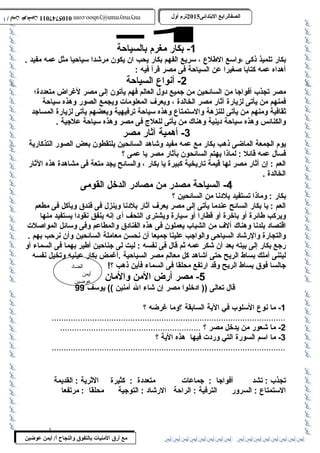 الصف الرابع الابتدائى2015ترم أول
1- بكار مغرم بالسياحة
بكار تلميذ ذكى واسع الاطلاع ، سريع الفهم بكار يحب ان يكون مرشدا سياحيا مثل عمه مفيد .
أهداه عمه كتابا صغيرا عن السياحة فى مصر قرأ فيه :
2- أنواع السياحة
مصر تجذب أفواجا من السائحين من جميع دول العالم فهم يأتون إلى مصر لأغراض متعددة؛
فمنهم من يأتى لزيارة أثار مصر الخالدة ، ويعرف المعلومات ويجمع الصور وهذه سياحة
ثقافية ومنهم من يأتى للنزهة والاستمتاع وهذه سياحة ترفيهية وبعضهم يأتى لزيارة المساجد
والكنائس وهذه سياحة دينية وهناك من يأتى للعلاج فى مصر وهذه سياحة علاجية .
3- أهمية أثار مصر
يوم الجمعة الماضى ذهب بكار مع عمه مفيد وشاهد السائحين يلتقطون بعض الصور التذكارية
فسأل عمه قائلا : لماذا يهتم السائحون بأثار مصر يا عمى ؟
العم : إن أثار مصر لها قيمة تاريخية كبيرة يا بكار ، والسائح يجد متعة فى مشاهدة هذه الأثار
الخالدة .
4- السياحة مصدر من مصادر الدخل القومى
بكار : وماذا تستفيد بلادنا من السائحين ؟
العم : يا بكار السائح عندما يأتى إلى مصر يعرف أثار بلادنا وينزل فى فندق ويأكل فى مطعم
ويركب طائرة أو باخرة أو قطارا أو سيارة ويشترى التحف أى إنه ينفق نقودا يستفيد منها
اقتصاد بلدنا وهناك آلاف من الشباب يعملون فى هذه الفنادق والمطاعم وفى وسائل المواصلات
والتجارة والإرشاد السياحى والواجب علينا جميعا أن نحسن معاملة السائحين وأن نرحب بهم .
رجع بكار إلى بيته بعد أن شكر عمه ثم قال فى نفسه : ليت لى جناحين أطير بهما فى السماء أو
ليتنى أملك بساط الريح حتى أشاهد كل معالم مصر السياحية .أغمض بكار عينيه وتخيل نفسه
جالسا فوق بساط الريح وقد ارتفع محلقا فى السماء فأين ذهب ؟!
5- مصر أرض الأمن والأمان
قال تعالى (( ادخلوا مصر إن شاء الله آمنين )) يوسف 99
1- ما نوع الأسلوب في الآية السابقة ؟وما غرضه ؟
2- ما شعور من يدخل مصر ؟
3- ما اسم السورة التي وردت فيها هذه الآية ؟
تجذب : تشد أفواجا : جماعات متعددة : كثيرة الأثرية : القديمة
الاستمتاع : السرور الترفية : الراحة الارشاد : التوجية محلقا : مرتفعا
مع أرق الأمنيات بالتفوق والنجاح أ/ أيمن عوضين